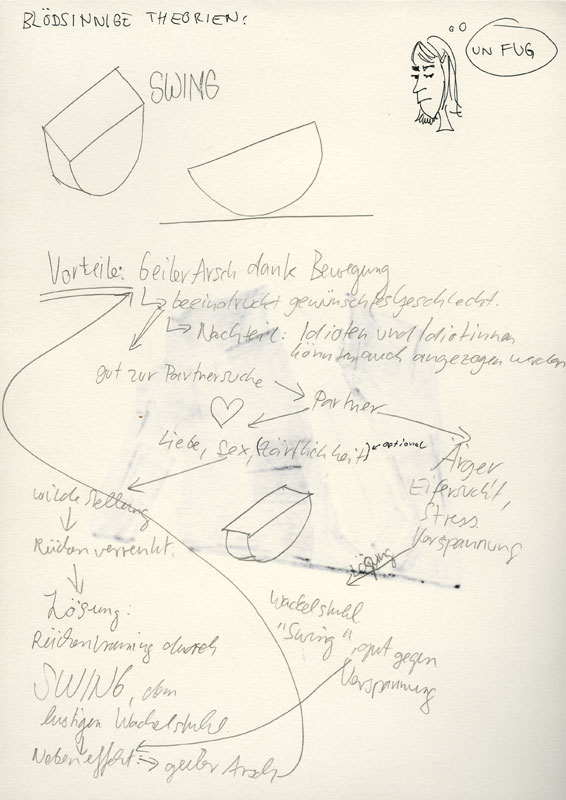 BLÖDSINNIGE THEORIEN:
UN FUG
SWING
Vorteile: Geiler Arsch dank Bewegung
beeindruckt gewünschtes Geschlecht.
Nachteil: Idioten und Idiotinnen
könnten auch angezogen werden
gut zur Partnersuche
Partner
Liebe, Sex, (Zärtlichkeit) optional
Ärger
Eifersucht,
Stress
Verspannung
wilde Stellung
Rücken verrenkt.
Lösung
Wackelstuhl
"Swing", gut gegen
Verspannung
Lösung:
Rückentraining durch
SWING, dem
lustigen Wackelstuhl.
Nebeneffekt: geiler Arsch